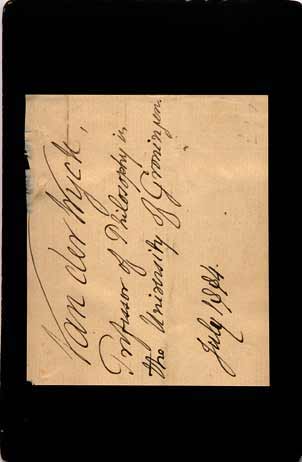 Van der Wyck,
Professor of Philosophy in
the University of Groningen.
July 1884.